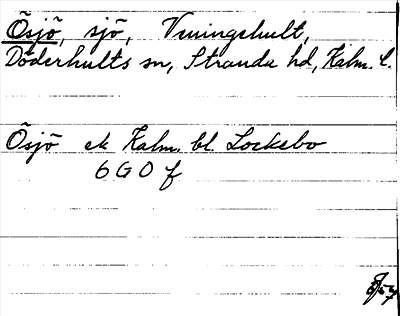 Ösjö, sjö, Vmingshult,
Döderhults sn, Stranda hd, Kalm. l.
Ösjö ek Kalm. bl. Lockebo
6 G 0 f